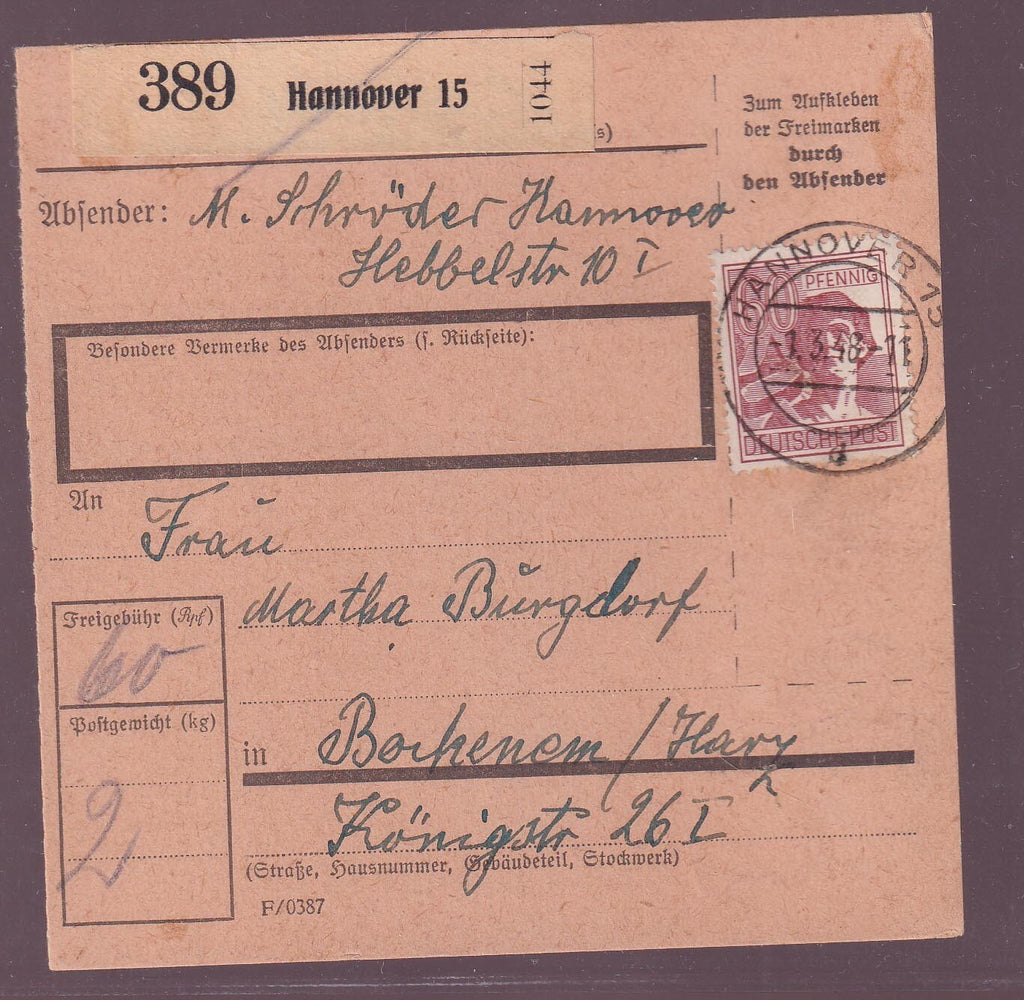 389 Hannover 15 1044
s)
Zum Aufkleben
der Freimarken
durch
den Absender
Absender: M. Schröder Hannover
Hebbelstr 10 I
60 PFENNIG
DEUTSCHE POST
HANNOVER 15
-1.3.48.-11
d
Besondere Vermerke des Absenders (s. Rückseite):
An
Frau
Martha Burgdorf
Freigebühr (Rpf)
60
Postgewicht (kg)
2
in Bockenem / Harz
Königstr 26 I
(Straße, Hausnummer, Gebäudeteil, Stockwerk)
F/0387